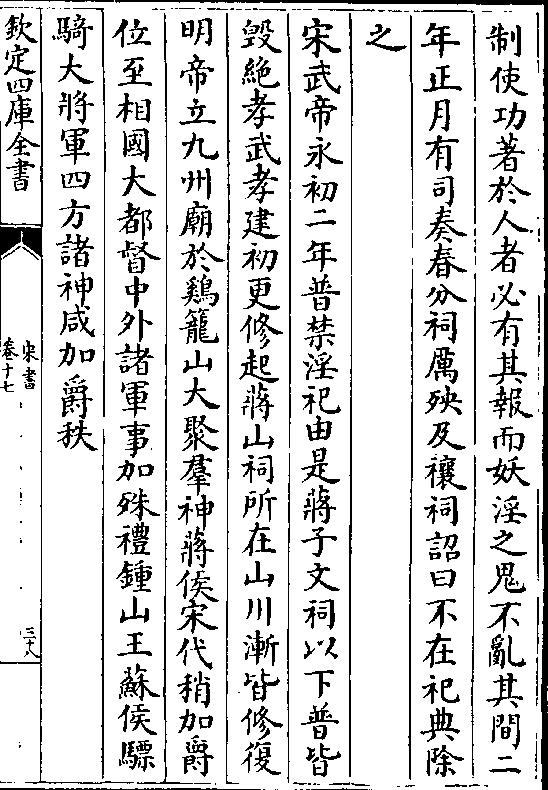 制使功著於人者必有其報而妖淫之鬼不亂其間二
年正月有司奏春分祠厲殃及禳祠詔曰不在祀典除
之
宋武帝永初二年普禁淫祀由是蔣子文祠以下普皆
毀絶孝武孝建初更修起蔣山祠所在山川漸皆修復
明帝立九州廟於鷄籠山大聚羣神蔣侯宋代稍加爵
位至相國大都督中外諸軍事加殊禮鍾山王蘇侯驃
騎大將軍四方諸神咸加爵秩
欽定四庫全書
宋書
卷十七
三十八